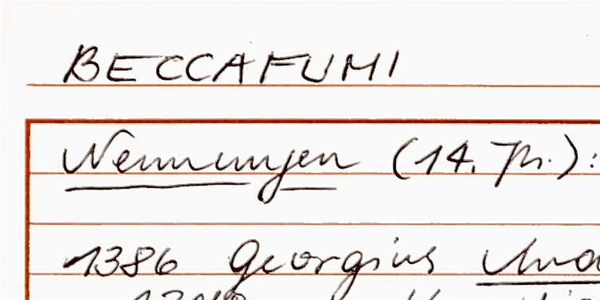 BECCAFUMI
Nennungen (14. Jh.):
1386 Georgius